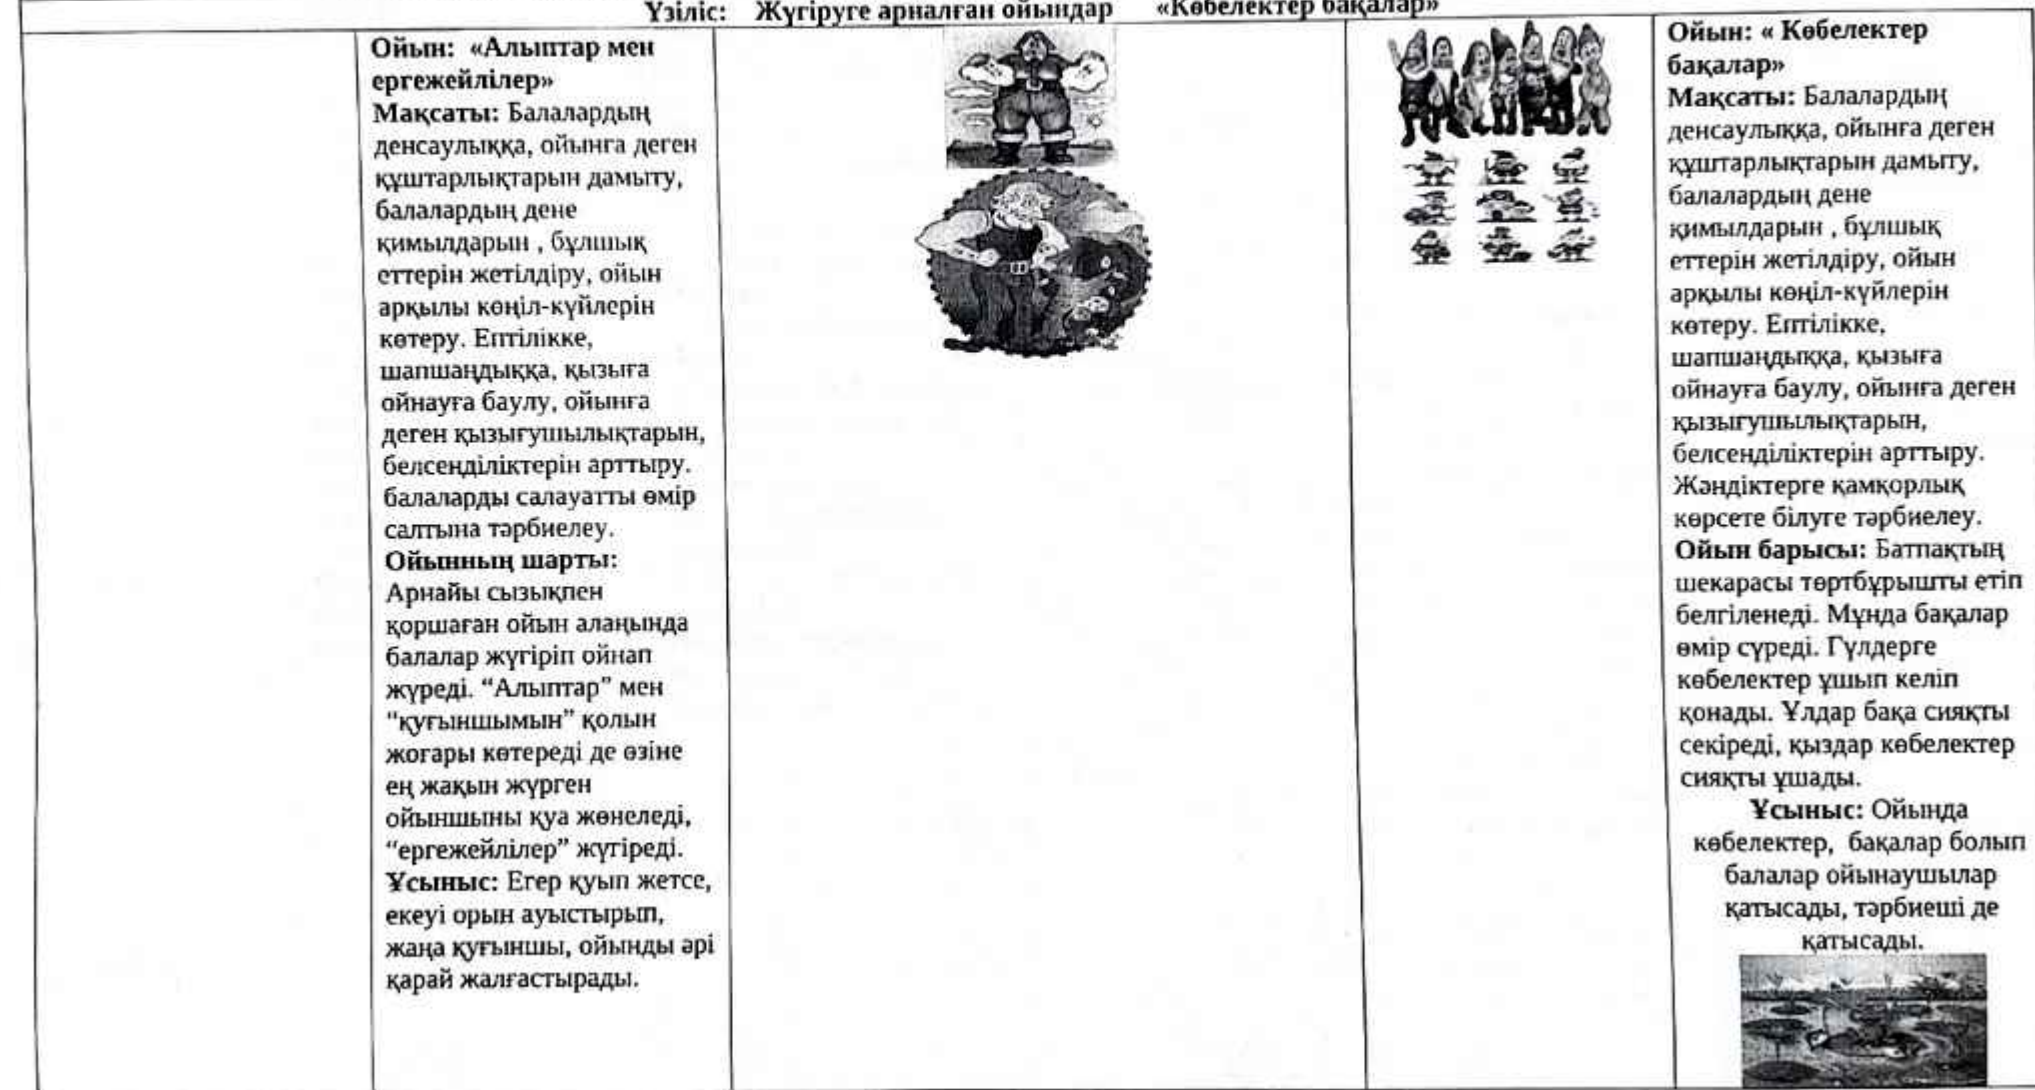 Үзіліс: Жүгіруге арналған ойындар «Көбелектер бақалар»
Ойын: «Алыптар мен
ергежейлілер»
Мақсаты: Балалардың
денсаулыққа, ойынға деген
құштарлықтарын дамыту,
балалардың дене
қимылдарын , бұлшық
еттерін жетілдіру, ойын
арқылы көңіл-күйлерін
көтеру. Ептілікке,
шапшаңдыққа, қызыға
ойнауға баулу, ойынға
деген қызығушылықтарын,
белсенділіктерін арттыру.
балаларды салауатты өмір
салтына тәрбиелеу.
Ойынның шарты:
Арнайы сызықпен
қоршаған ойын алаңында
балалар жүгіріп ойнап
жүреді. “Алыптар” мен
“қуғыншымын” қолын
жоғары көтереді де өзіне
ең жақын жүрген
ойыншыны қуа жөнеледі,
“ергежейлілер” жүгіреді.
Ұсыныс: Егер қуып жетсе,
екеуі орын ауыстырып,
жаңа қуғыншы, ойынды әрі
қарай жалғастырады.
Ойын: « Көбелектер
бақалар»
Мақсаты: Балалардың
денсаулыққа, ойынға деген
құштарлықтарын дамыту,
балалардың дене
қимылдарын , бұлшық
еттерін жетілдіру, ойын
арқылы көңіл-күйлерін
көтеру. Ептілікке,
шапшаңдыққа, қызыға
ойнауға баулу, ойынға деген
қызығушылықтарын,
белсенділіктерін арттыру.
Жәндіктерге қамқорлық
көрсете білуге тәрбиелеу.
Ойын барысы: Батпақтың
шекарасы төртбұрышты етіп
белгіленеді. Мұнда бақалар
өмір сүреді. Гүлдерге
көбелектер ұшып келіп
қонады. Ұлдар бақа сияқты
секіреді, қыздар көбелектер
сияқты ұшады.
Ұсыныс: Ойында
көбелектер, бақалар болып
балалар ойынаушылар
қатысады, тәрбиеші де
қатысады.